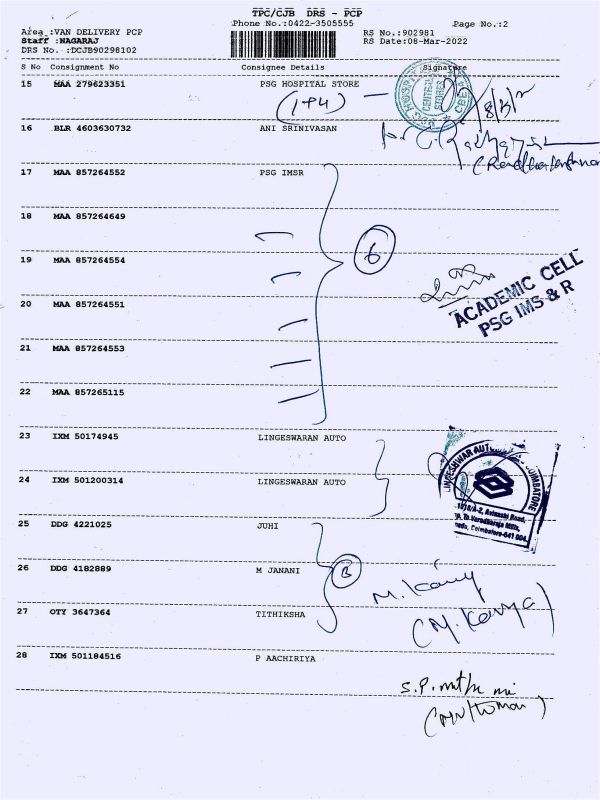 TPC/CJB DRS - PCP
Phone No.:0422-3505555
Page No.:2
Area :VAN DELIVERY PCP
Staff :NAGARAJ
DRS No. :DCJB90298102
RS No.:902981
RS Date:08-Mar-2022
S No Consignment No Consignee Details Signature
15 MAA 279623351 PSG HOSPITAL STORE
CENTRAL STORES
8/3/2
16 BLR 4603630732 ANI SRINIVASAN
17 MAA 857264552 PSG IMSR
18 MAA 857264649
6
19 MAA 857264554
ACADEMIC CELL
PSG IMS & R
20 MAA 857264551
21 MAA 857264553
22 MAA 857265115
23 IXM 50174945 LINGESWARAN AUTO
24 IXM 501200314 LINGESWARAN AUTO
COIMBATORE
Avinashi Road,
Varadharaja Mills,
Coimbatore-641 004.
25 DDG 4221025 JUHI
26 DDG 4182889 M JANANI
27 OTY 3647364 TITHIKSHA
(M. Kavya)
28 IXM 501184516 P AACHIRIYA